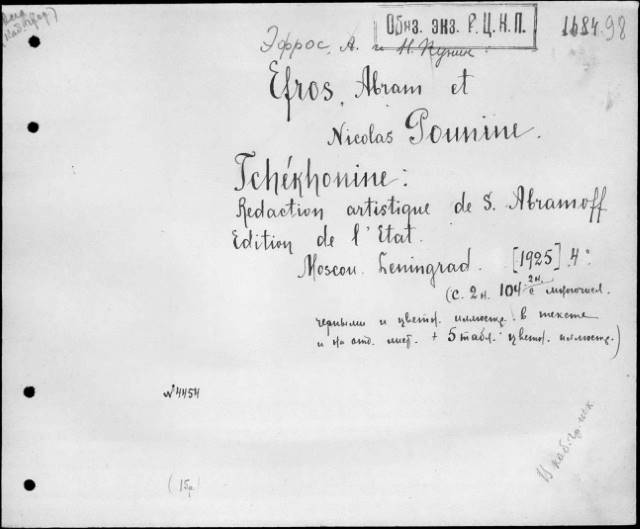 Обяз. экз. Р.Ц.К.П.
1684 98
Эфрос, А. и Н. Пунин.
Efros, Abram et
Nicolas Pounine.
Tchékhonine:
Redaction artistique de S. Abramoff
Edition de l'Etat.
Moscou. Leningrad. [1925]. 4°
(с. 2 н. 104 с 2 н.
черными и цветн. иллюстр. в тексте
и на отд. лист. + 5 табл. цветн. иллюстр.)
№4454
(15р)